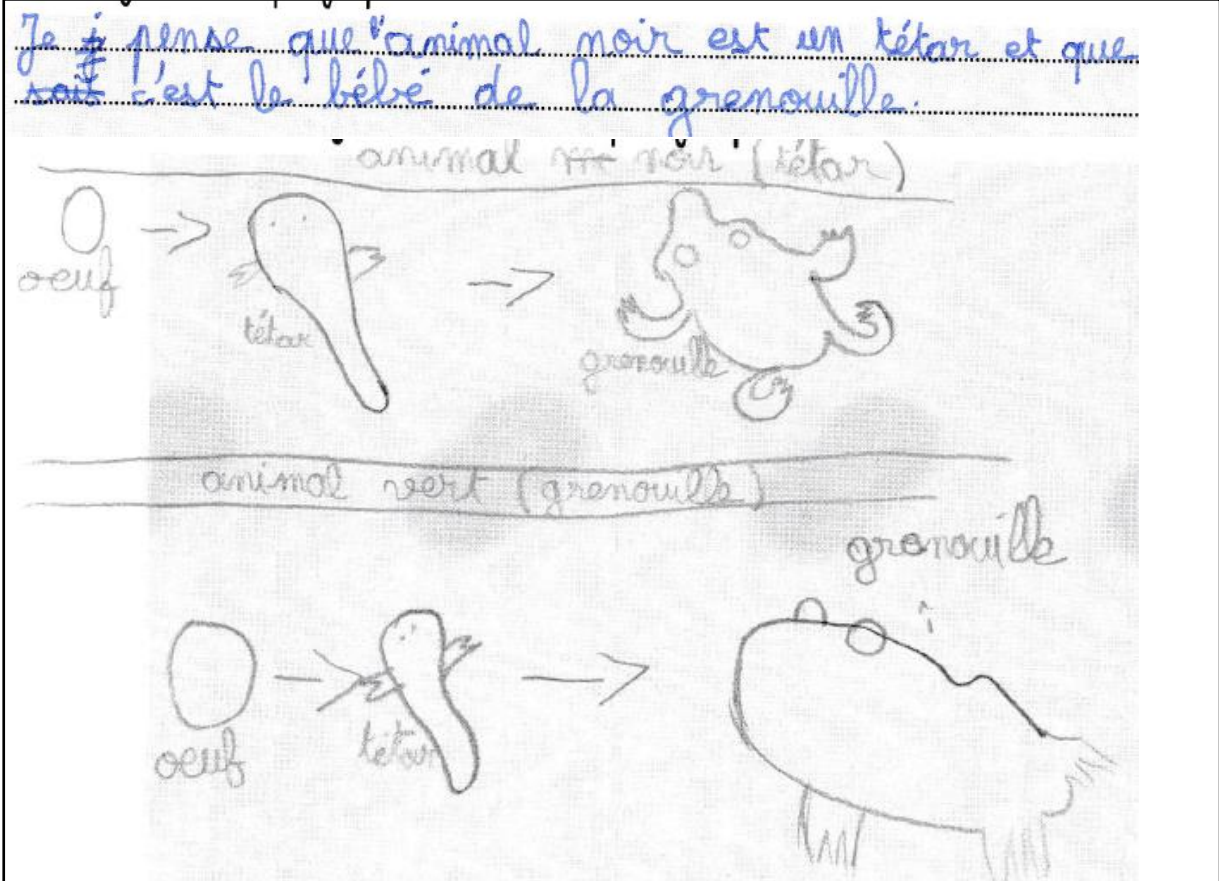 Je pense que l'animal noir est un tétar et que
c'est le bébé de la grenouille.
animal noir (tétar)
oeuf
tétar
grenouille
animal vert (grenouille)
grenouille
oeuf
tétar